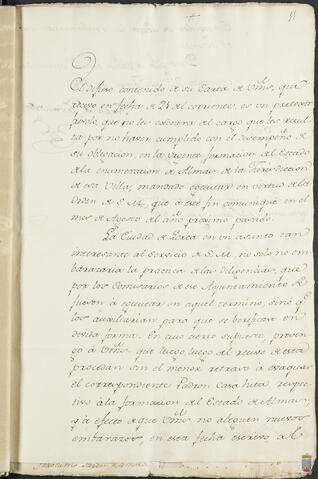 11
El difuso contenido de su Carta de Vms, que
recivo en fecha de 24 del corriente, es un pretexto
frivolo, que no les exhonera al cargo que les resul
ta por no haver cumplido con el desempeño de
su obligacion, en la vigente formacion del Estado
de la enumeracion de Almas de la Jurisdiccion
de esa Villa, mandado executar en virtud de la
Orden de S. M. que à este fin comuniqué en el
mes de Agosto del año proximo pasado.
La Ciudad de Lorca en un asunto tan
interesante al servicio de S. M., no solo no em
barazaria la practica de las diligencias, que
por los Comisarios de ese Ayuntamiento se
fuesen à executar en aquel termino, sinó que
los auxiliarian para que se berificase en
devida forma. En cuio cierto supuesto, preven
go à Vms. que luego, luego al recivo de esta
procedan sin el menor retraso à evaquar
el correspondiente Padron Casa hita, respec
tivo à la formacion del Estado de Almas;
y à efecto de que Vms. no aleguen nuevos
embarazos, en esta fecha escrivo al